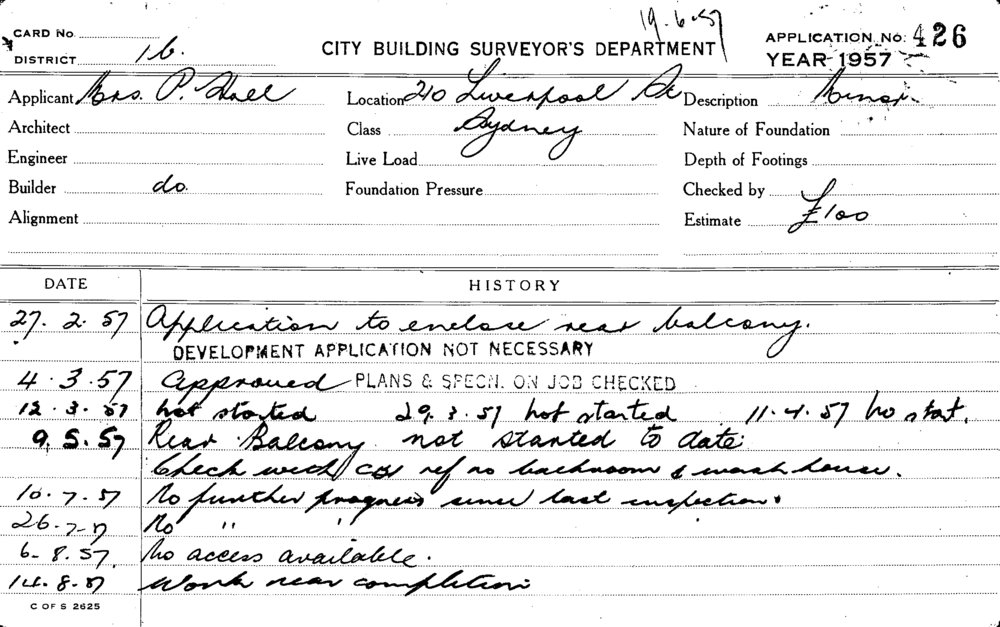 19.6.57
CARD No.
DISTRICT 16.
CITY BUILDING SURVEYOR'S DEPARTMENT
APPLICATION No. 426
YEAR 1957
Applicant Mrs. P. Hall Location 210 Liverpool St Description Minor.
Architect Class Sydney Nature of Foundation
Engineer Live Load Depth of Footings
Builder do. Foundation Pressure Checked by
Alignment Estimate £100
DATE HISTORY
27. 2. 57 Application to enclose rear balcony.
DEVELOPMENT APPLICATION NOT NECESSARY
4. 3. 57 Approved PLANS & SPECN. ON JOB CHECKED
12. 3. 57 not started 29. 3. 57 not started 11. 4. 57 no start.
9. 5. 57 Rear Balcony not started to date.
Check with ref no bathroom & wash house.
10. 7. 57 No further progress since last inspection.
26. 7. 57 No " "
6. 8. 57 No access available.
14. 8. 57 Work near completion
C OF S 2625